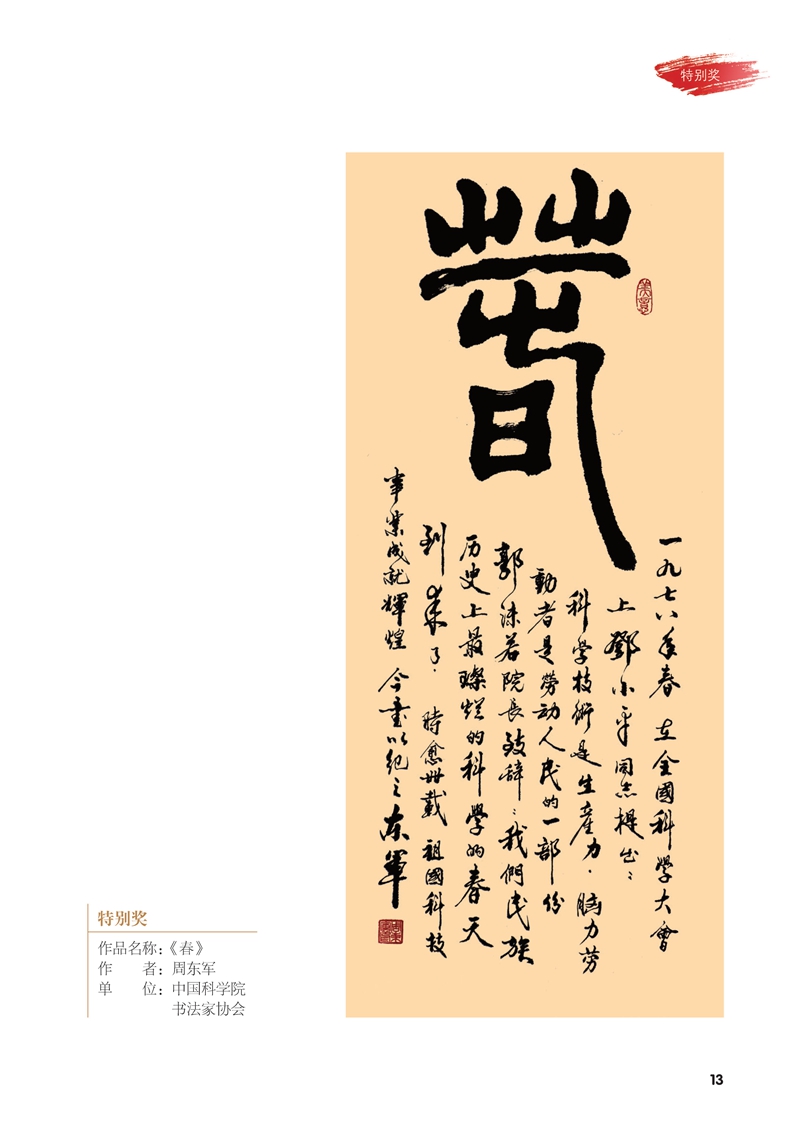 特别奖
萅
一九七八年春 在全國科學大會
上鄧小平同志提出：
科學技術是生産力．腦力劳
動者是勞动人民的一部份
郭沫若院長致辞：我們民族
历史上最璨烂的科學的春天
到来了．時愈卌載 祖國科技
事業成就輝煌 今書以紀之 东軍
特别奖
作品名称：《春》
作　　者：周东军
单　　位：中国科学院
书法家协会
13